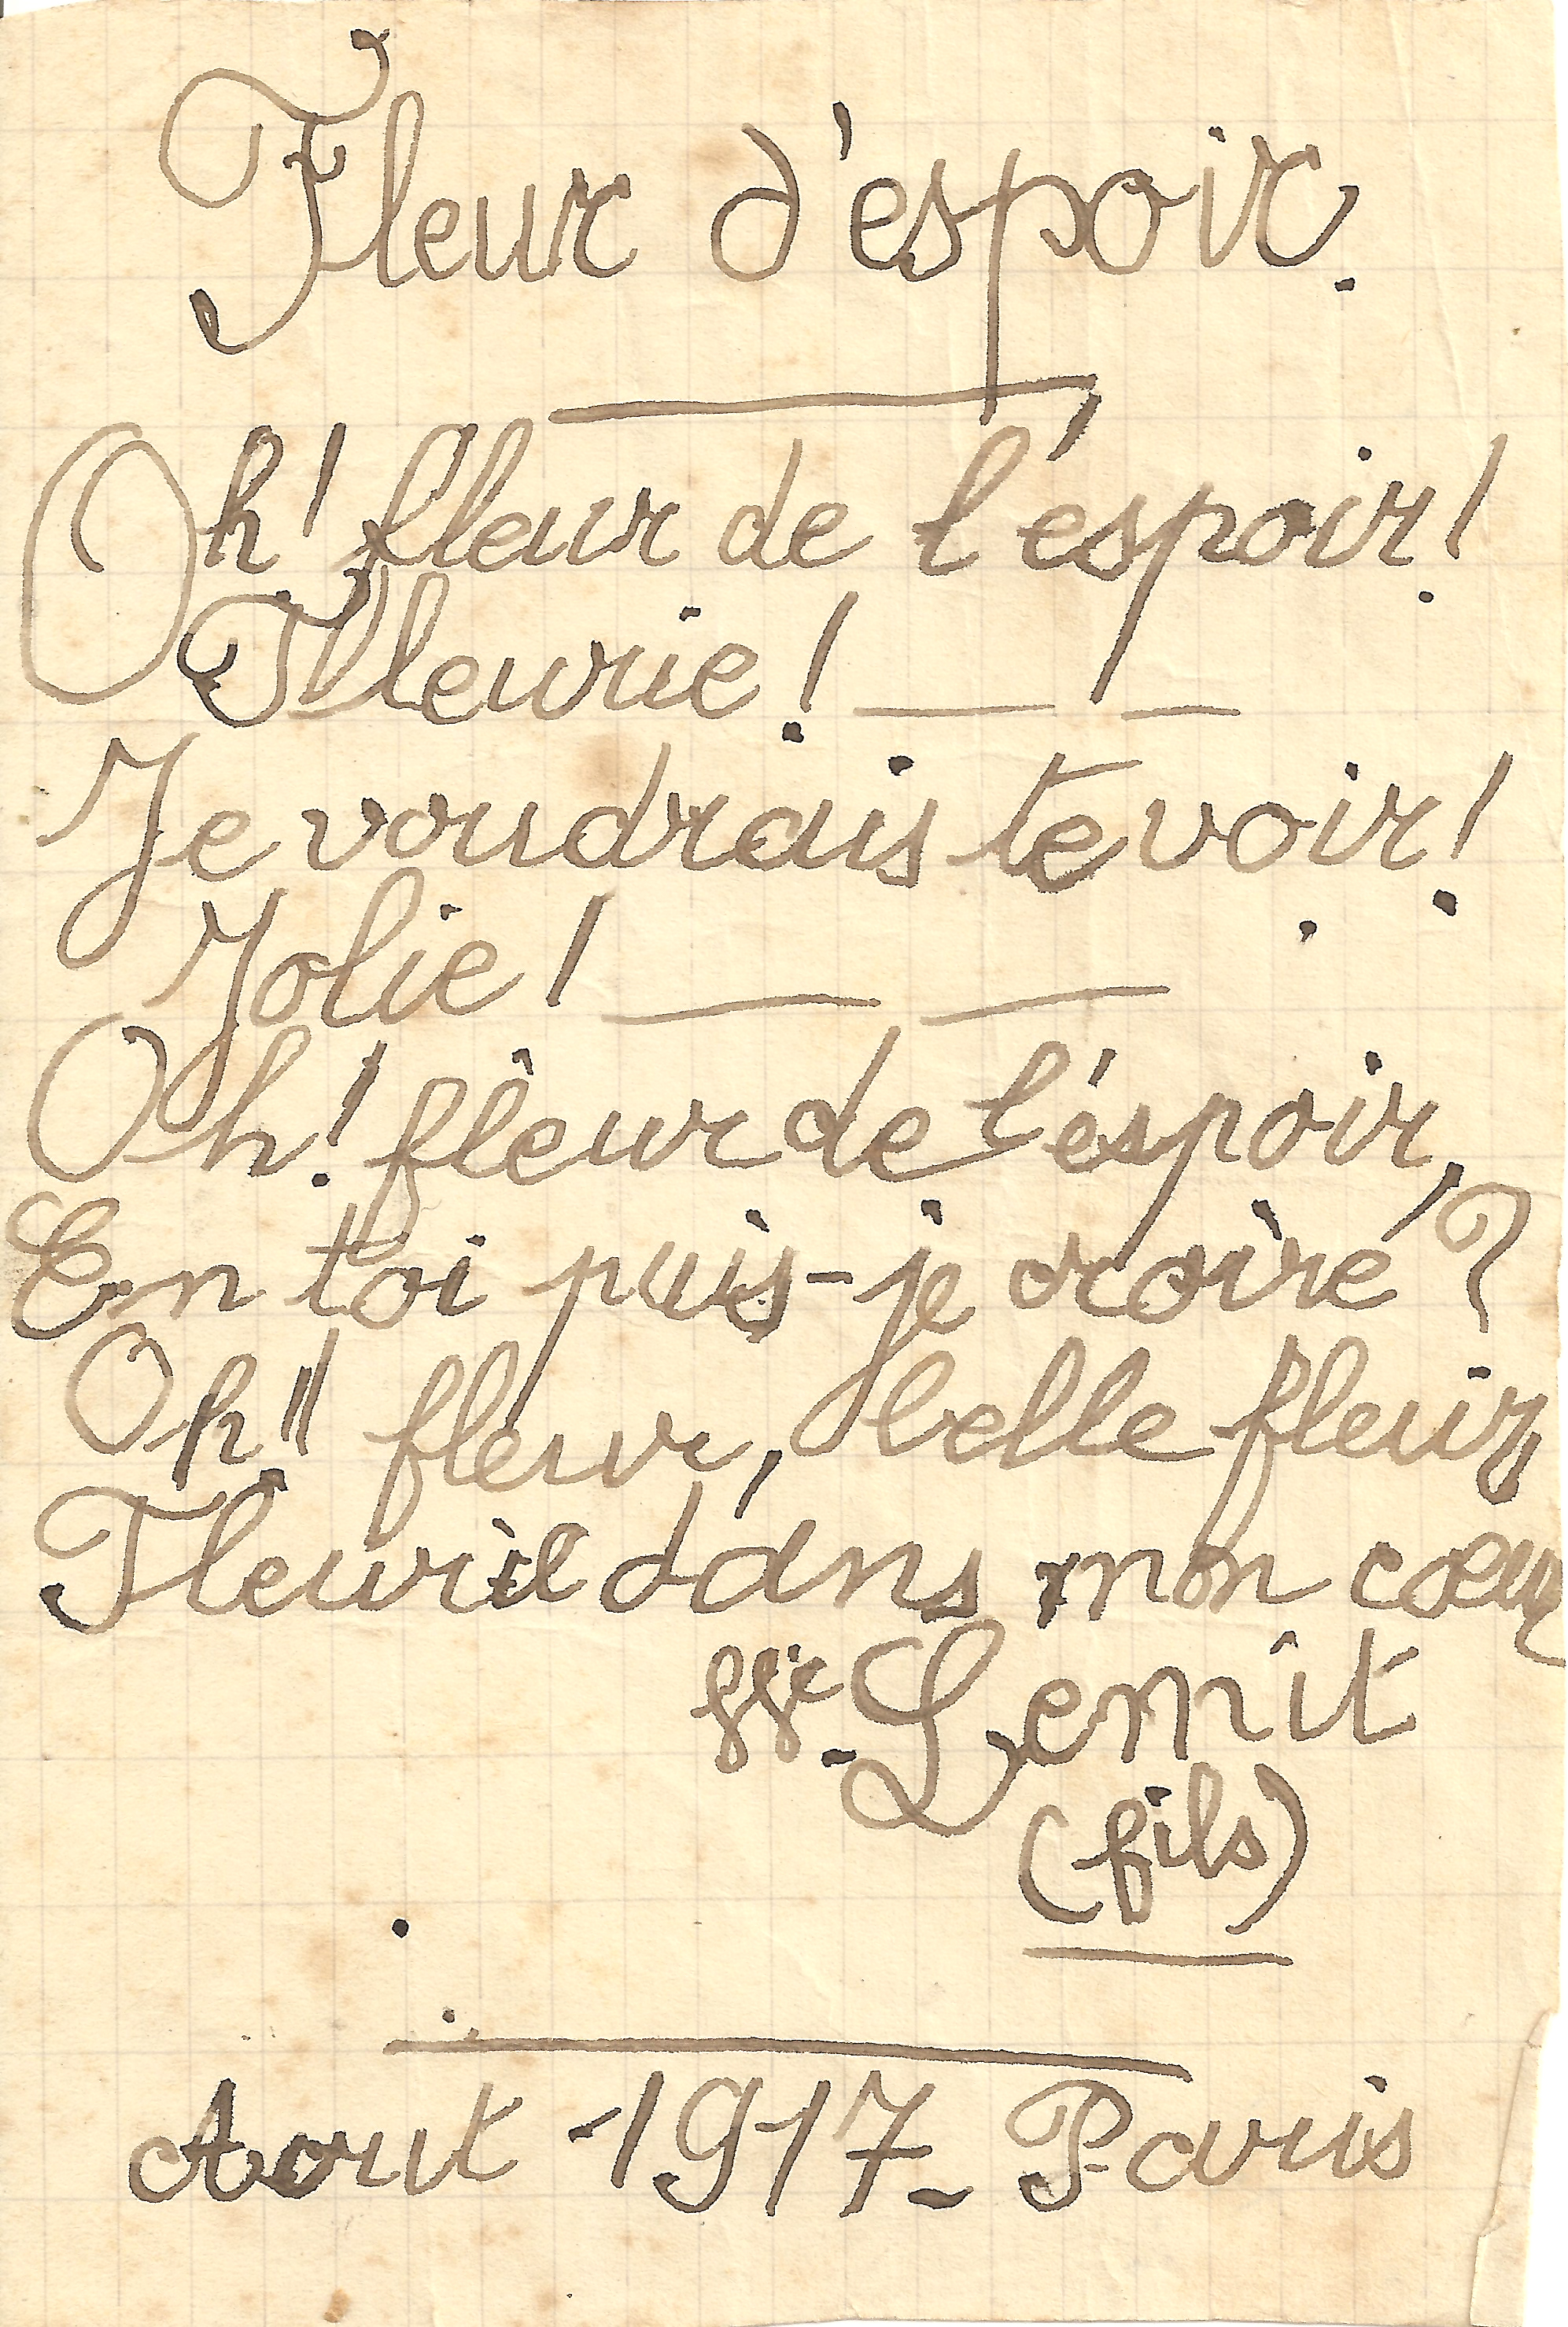 Fleur d'espoir.
Oh! fleur de l'espoir!
Fleurie! _ _
Je voudrais te voir!
Jolie! _ _
Oh! fleur de l'espoir,
En toi puis-je croire?
Oh!! fleur, belle fleur,
Fleurie dans mon cœur
Lemit
(fils)
Aout 1917_ Paris